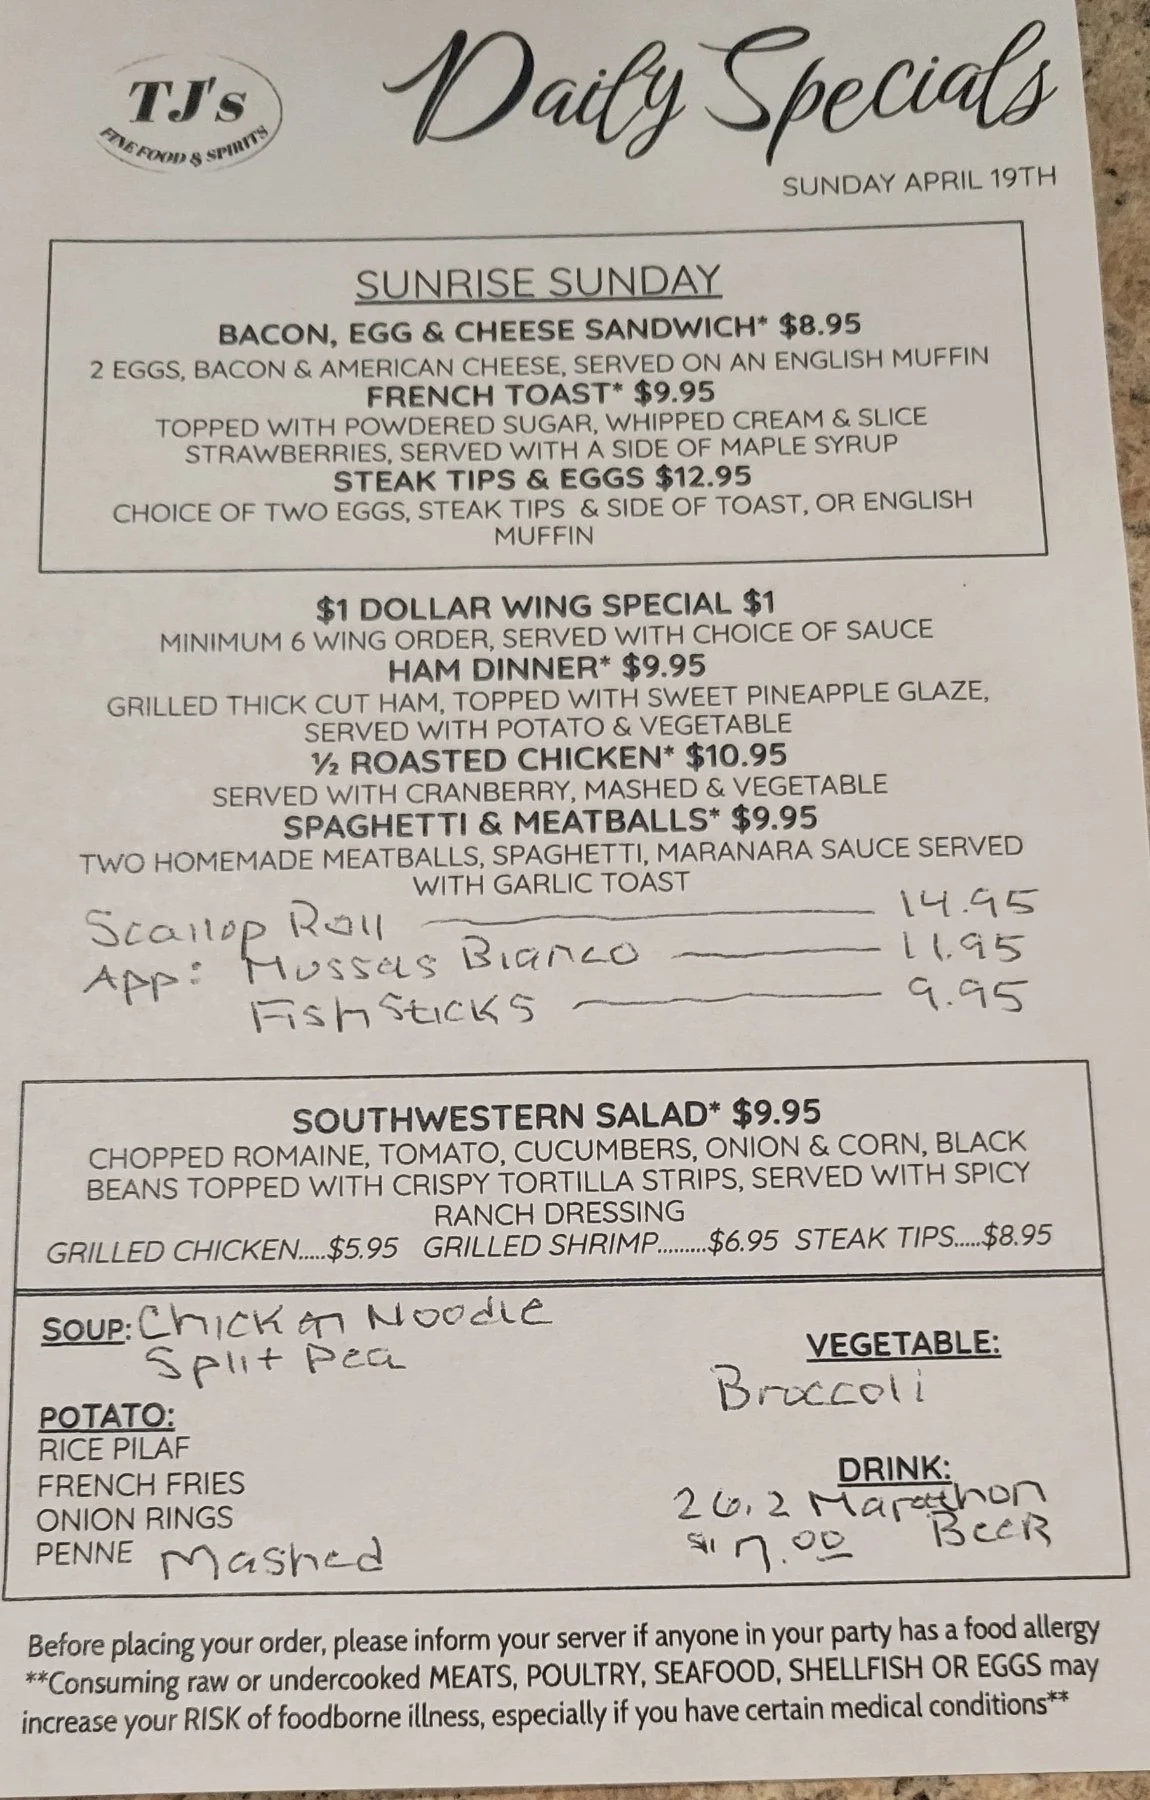 TJ's
FINE FOOD & SPIRITS
Daily Specials
SUNDAY APRIL 19TH
SUNRISE SUNDAY
BACON, EGG & CHEESE SANDWICH* $8.95
2 EGGS, BACON & AMERICAN CHEESE, SERVED ON AN ENGLISH MUFFIN
FRENCH TOAST* $9.95
TOPPED WITH POWDERED SUGAR, WHIPPED CREAM & SLICE
STRAWBERRIES, SERVED WITH A SIDE OF MAPLE SYRUP
STEAK TIPS & EGGS $12.95
CHOICE OF TWO EGGS, STEAK TIPS & SIDE OF TOAST, OR ENGLISH
MUFFIN
$1 DOLLAR WING SPECIAL $1
MINIMUM 6 WING ORDER, SERVED WITH CHOICE OF SAUCE
HAM DINNER* $9.95
GRILLED THICK CUT HAM, TOPPED WITH SWEET PINEAPPLE GLAZE,
SERVED WITH POTATO & VEGETABLE
½ ROASTED CHICKEN* $10.95
SERVED WITH CRANBERRY, MASHED & VEGETABLE
SPAGHETTI & MEATBALLS* $9.95
TWO HOMEMADE MEATBALLS, SPAGHETTI, MARANARA SAUCE SERVED
WITH GARLIC TOAST
Scallop Roll 14.95
App: Mussels Bianco 11.95
Fish Sticks 9.95
SOUTHWESTERN SALAD* $9.95
CHOPPED ROMAINE, TOMATO, CUCUMBERS, ONION & CORN, BLACK
BEANS TOPPED WITH CRISPY TORTILLA STRIPS, SERVED WITH SPICY
RANCH DRESSING
GRILLED CHICKEN.....$5.95 GRILLED SHRIMP.........$6.95 STEAK TIPS.....$8.95
SOUP: Chicken Noodle
Split Pea
POTATO:
RICE PILAF
FRENCH FRIES
ONION RINGS
PENNE Mashed
VEGETABLE:
Broccoli
DRINK:
26.2 Marathon
$7.00 Beer
Before placing your order, please inform your server if anyone in your party has a food allergy
**Consuming raw or undercooked MEATS, POULTRY, SEAFOOD, SHELLFISH OR EGGS may
increase your RISK of foodborne illness, especially if you have certain medical conditions**